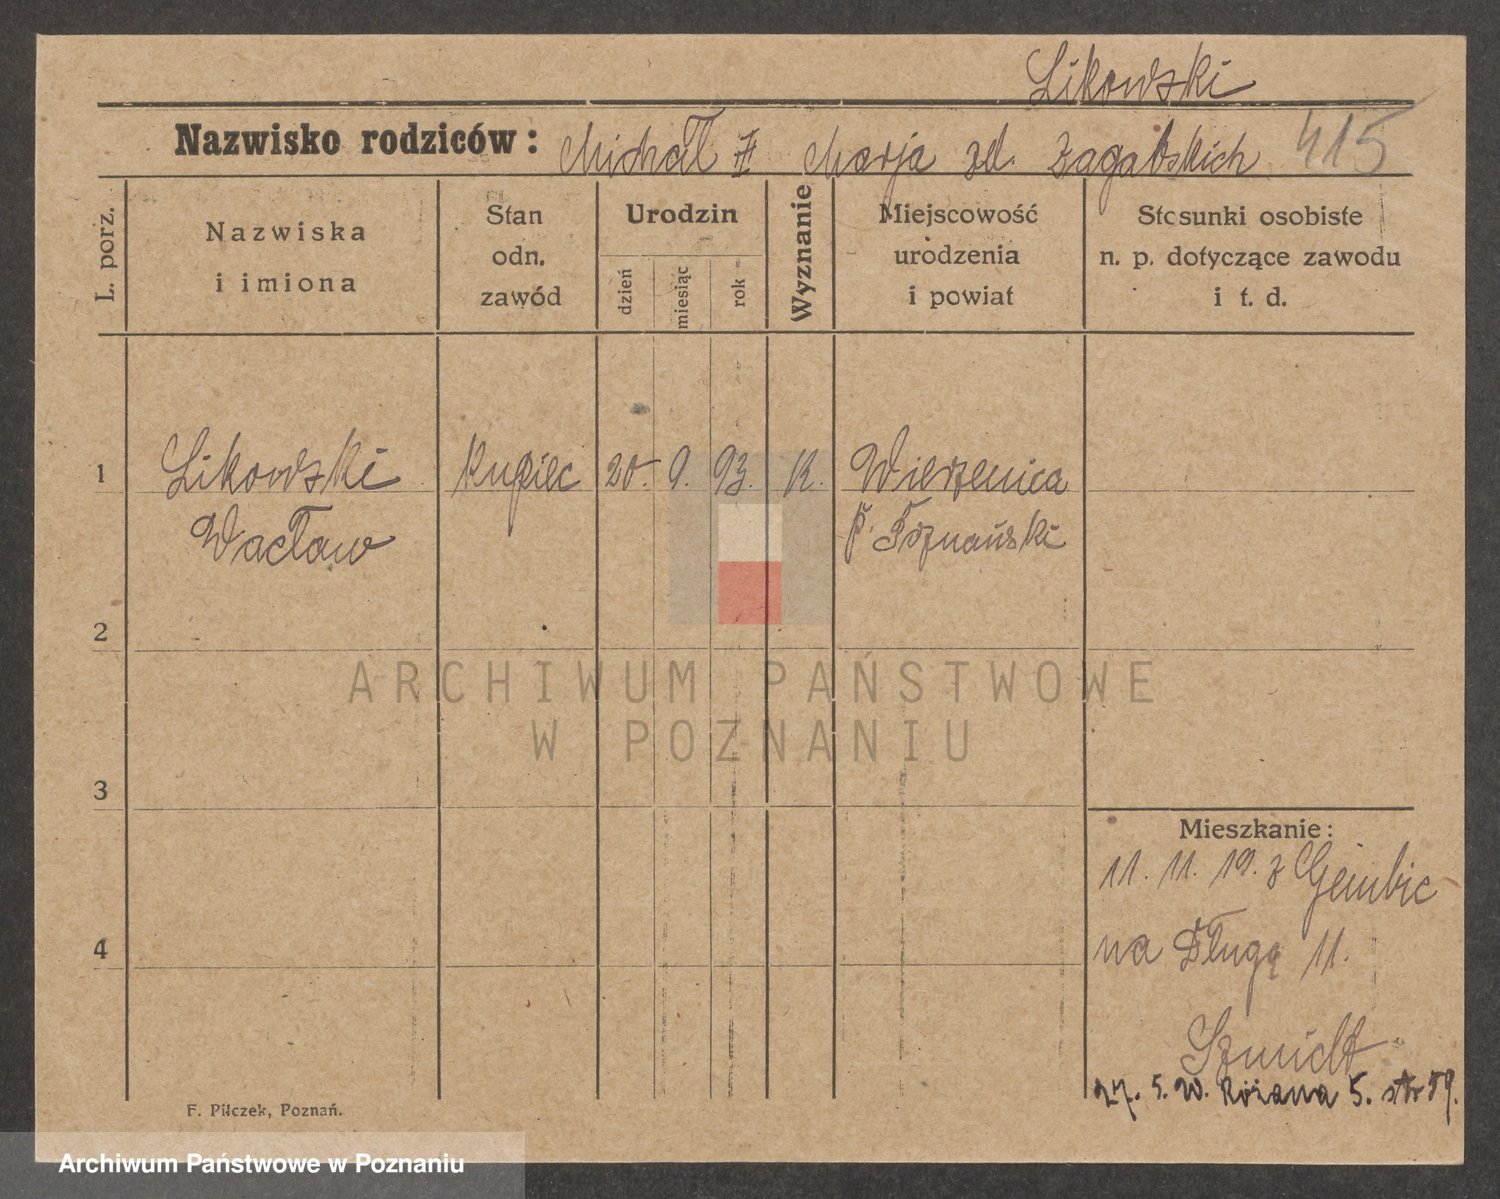 Likowski
Nazwisko rodziców: Michał Marja zd. Zagabskich 415
L. porz.
Nazwiska
i imiona
Stan
odn.
zawód
Urodzin
dzień
miesiąc
rok
Wyznanie
Miejscowość
urodzenia
i powiat
Stosunki osobiste
n. p. dotyczące zawodu
i t. d.
1 Likowski Kupiec 20. 9. 93. K. Wierzenica
Wacław P. Poznański
2
ARCHIWUM PAŃSTWOWE
W POZNANIU
3
Mieszkanie:
11. 11. 19. z Gembic
4 na Długą 11.
Szmidt
27. 5. 20. Różana 5. str 59.
F. Pilczek, Poznań.
Archiwum Państwowe w Poznaniu